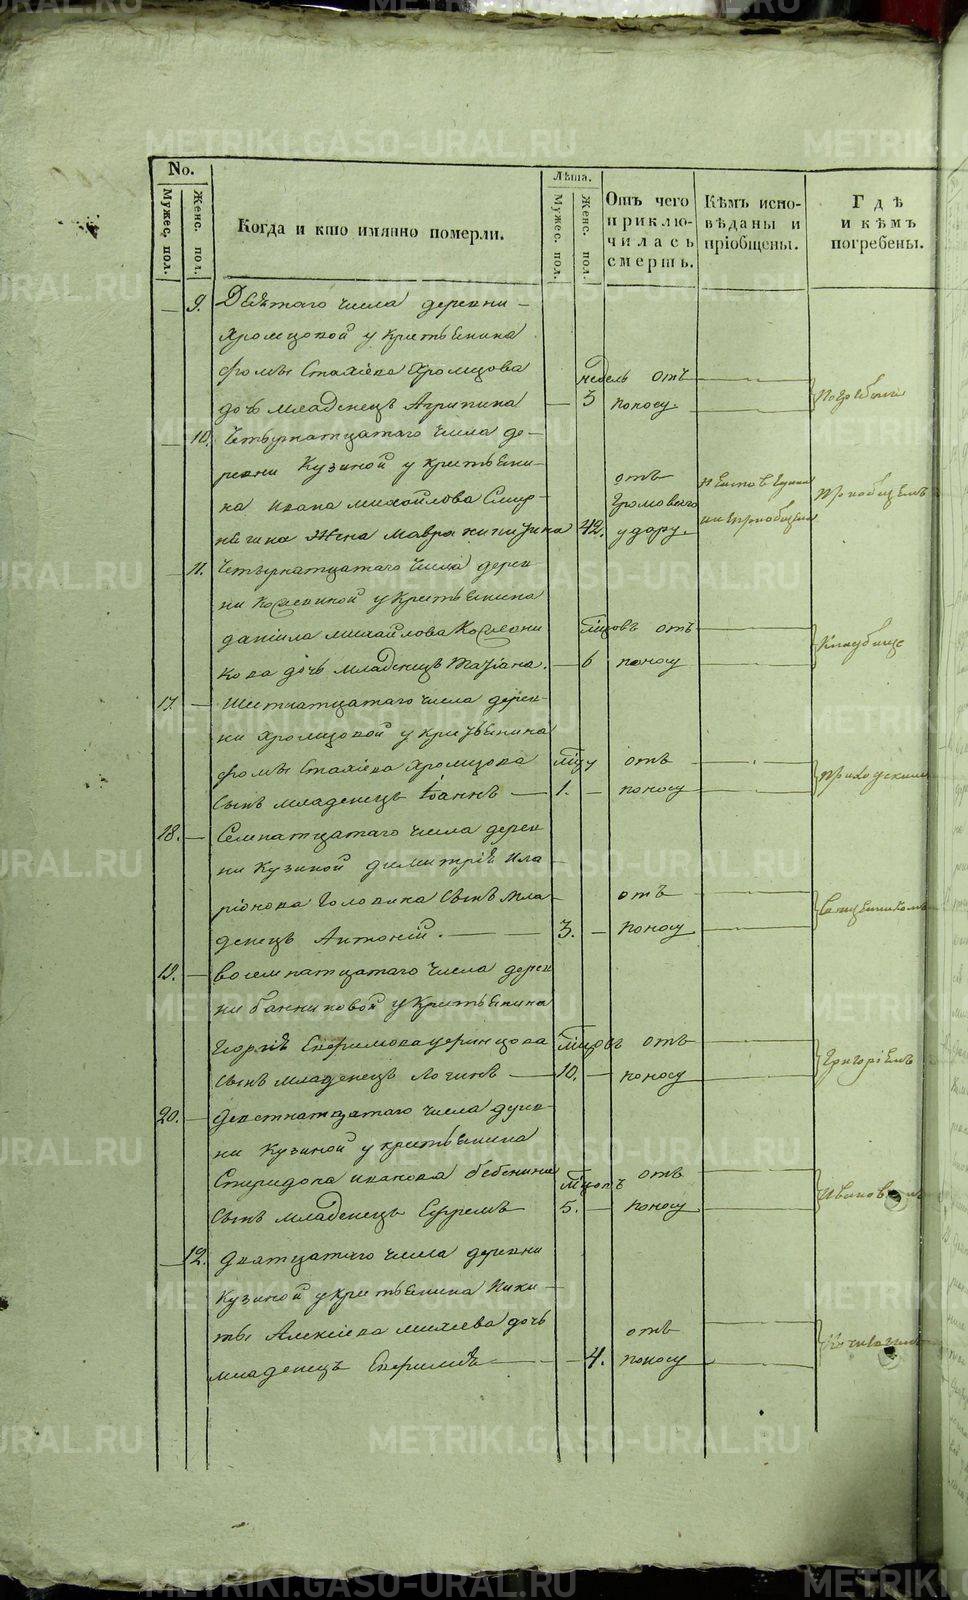 No.
Мужес. пол.
Женс. пол.
Когда и кто имянно померли.
Лѣта.
Мужес. пол.
Женс. пол.
Отъ чего
приклю-
чилась
смерть.
Кѣмъ испо-
вѣданы и
пріобщены.
Гдѣ
и кѣмъ
погребены.
9. Девятаго числа деревни
Хромцовой у крестьянина
Фомы Стахіева Хромцова
дочь младенецъ Агрипина
недель
3
отъ
поносу.
10. Четырнатцатаго числа де-
ревни Кузиной у крестьяни-
на Ивана Михайлова
жена Мавра
42.
отъ
громоваго
удару.
11. Четырнатцатаго числа дерев-
ни у крестьянина
Даніила Михайлова
кова дочь младенецъ Татіана.
мцовъ
6
отъ
поносу
17. Шестнатцатаго числа дерев-
ни Хромцовой у крестьянина
Фомы Стахіева Хромцова
сынъ младенецъ Іоаннъ
мцу
1.
отъ
поносу
18. Семнатцатаго числа дерев
ни Кузиной Димитрія Ила-
ріонова Голована сынъ мла-
денецъ Антоній.
3.
отъ
поносу
19. восемнатцатаго числа дерев
ни Банниковой у крестьянина
Георгія Ефримова
сынъ младенецъ Логинъ
мцовъ
10.
отъ
поносу
20. девятнатцатаго числа дерев-
ни Кузиной у крестьянина
Спиридона Иванова Бебенина
сынъ младенецъ Ефремъ
мцовъ
5.
отъ
поносу
12. двятцатаго числа деревни
Кузиной у крестьянина Ники-
ты Алексіева Михеева дочь
младенецъ
4.
отъ
поносу
Погребены
Приходскимъ
Священникомъ
Григоріемъ
METRIKI.GASO-URAL.RU